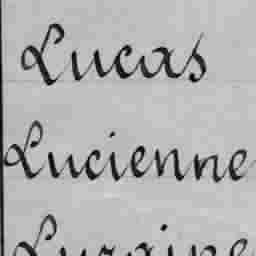 Lucas
Lucienne